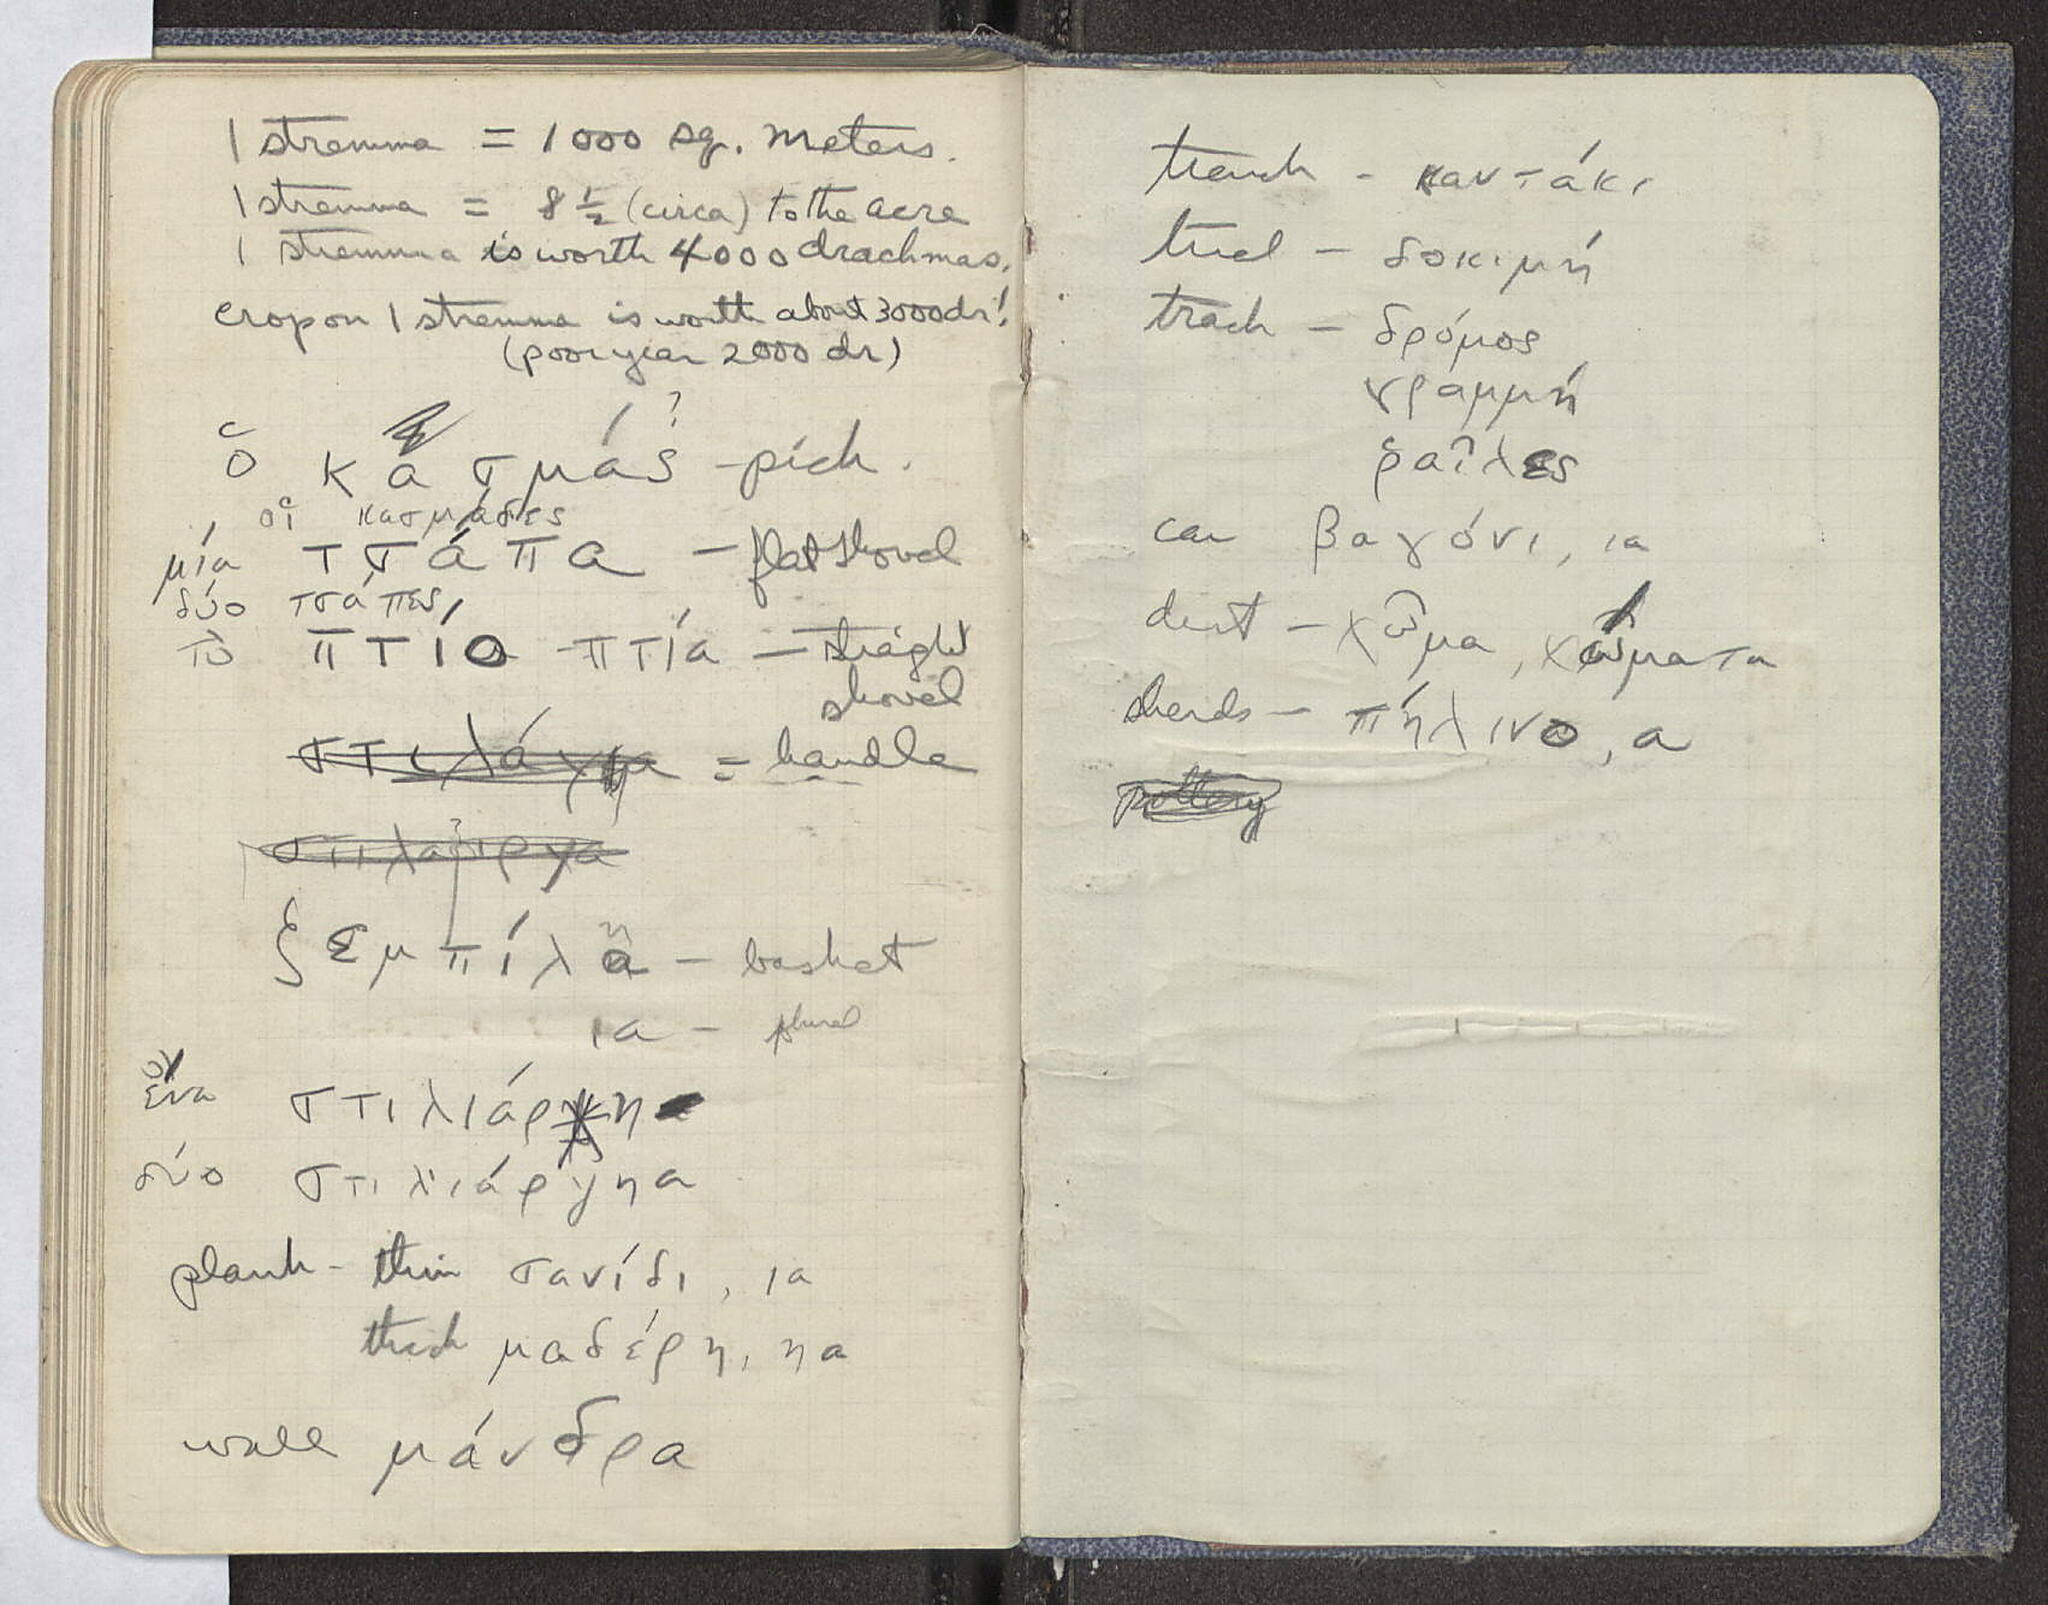 1 stremma = 1000 sq. meters.
1 stremma = 8 ½ (circa) to the acre
1 stremma is worth 4000 drachmas.
crop on 1 stremma is worth about 3000 dr!
(poor year 2000 dr)
ὁ κασμάς? - pick.
οἱ κασμάδες
μία τσάπα - flat shovel
δύο τσάπες,
τὸ πτίο - πτία - straight
shovel
στιλάχη = handle
ξεμπίλι - basket
ια - plural
ἕνα στιλιάρχη
δύο στιλιάργηα
plank - thin σανίδι, ια
thick μαδέρη, ηα
wall μάνδρα
trench - χαντάκι
trial - δοκιμή
track - δρόμος
γραμμή
ῥαῖλες
car βαγόνι, ια
dirt - χῶμα, χώματα
sherds - πήλινο, α
pottery